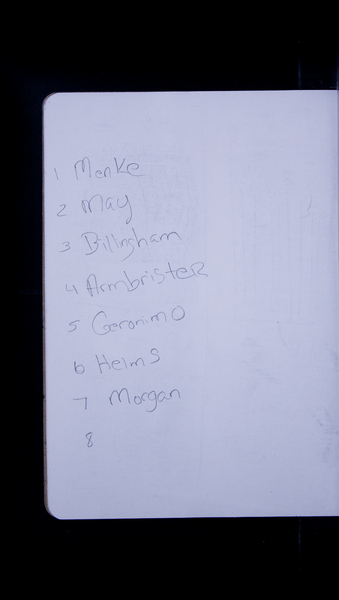 1 Menke
2 May
3 Billingham
4 Armbrister
5 Geronimo
6 Helms
7 Morgan
8